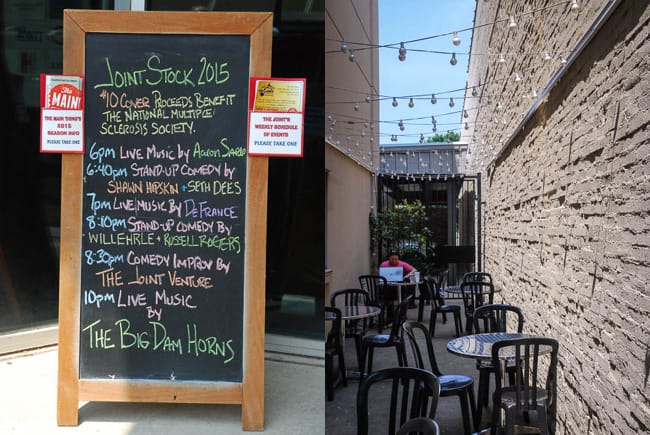 JOINT STOCK 2015
$10 COVER PROCEEDS BENEFIT
THE NATIONAL MULTIPLE
SCLEROSIS SOCIETY.
6pm LIVE MUSIC BY
6:40pm STAND-UP COMEDY BY
SHAWN HIPSKIN + SETH DEES
7pm LIVE MUSIC BY DEFRANCE
8:10pm STAND-UP COMEDY BY
WILL EHRLE + RUSSELL ROGERS
8:30pm COMEDY IMPROV BY
THE JOINT VENTURE
10pm LIVE MUSIC
BY
THE BIG DAM HORNS
The
MAIN
THE MAIN THING'S
2015
SEASON INFO
PLEASE TAKE ONE
THE JOINT'S
WEEKLY SCHEDULE
OF EVENTS
PLEASE TAKE ONE